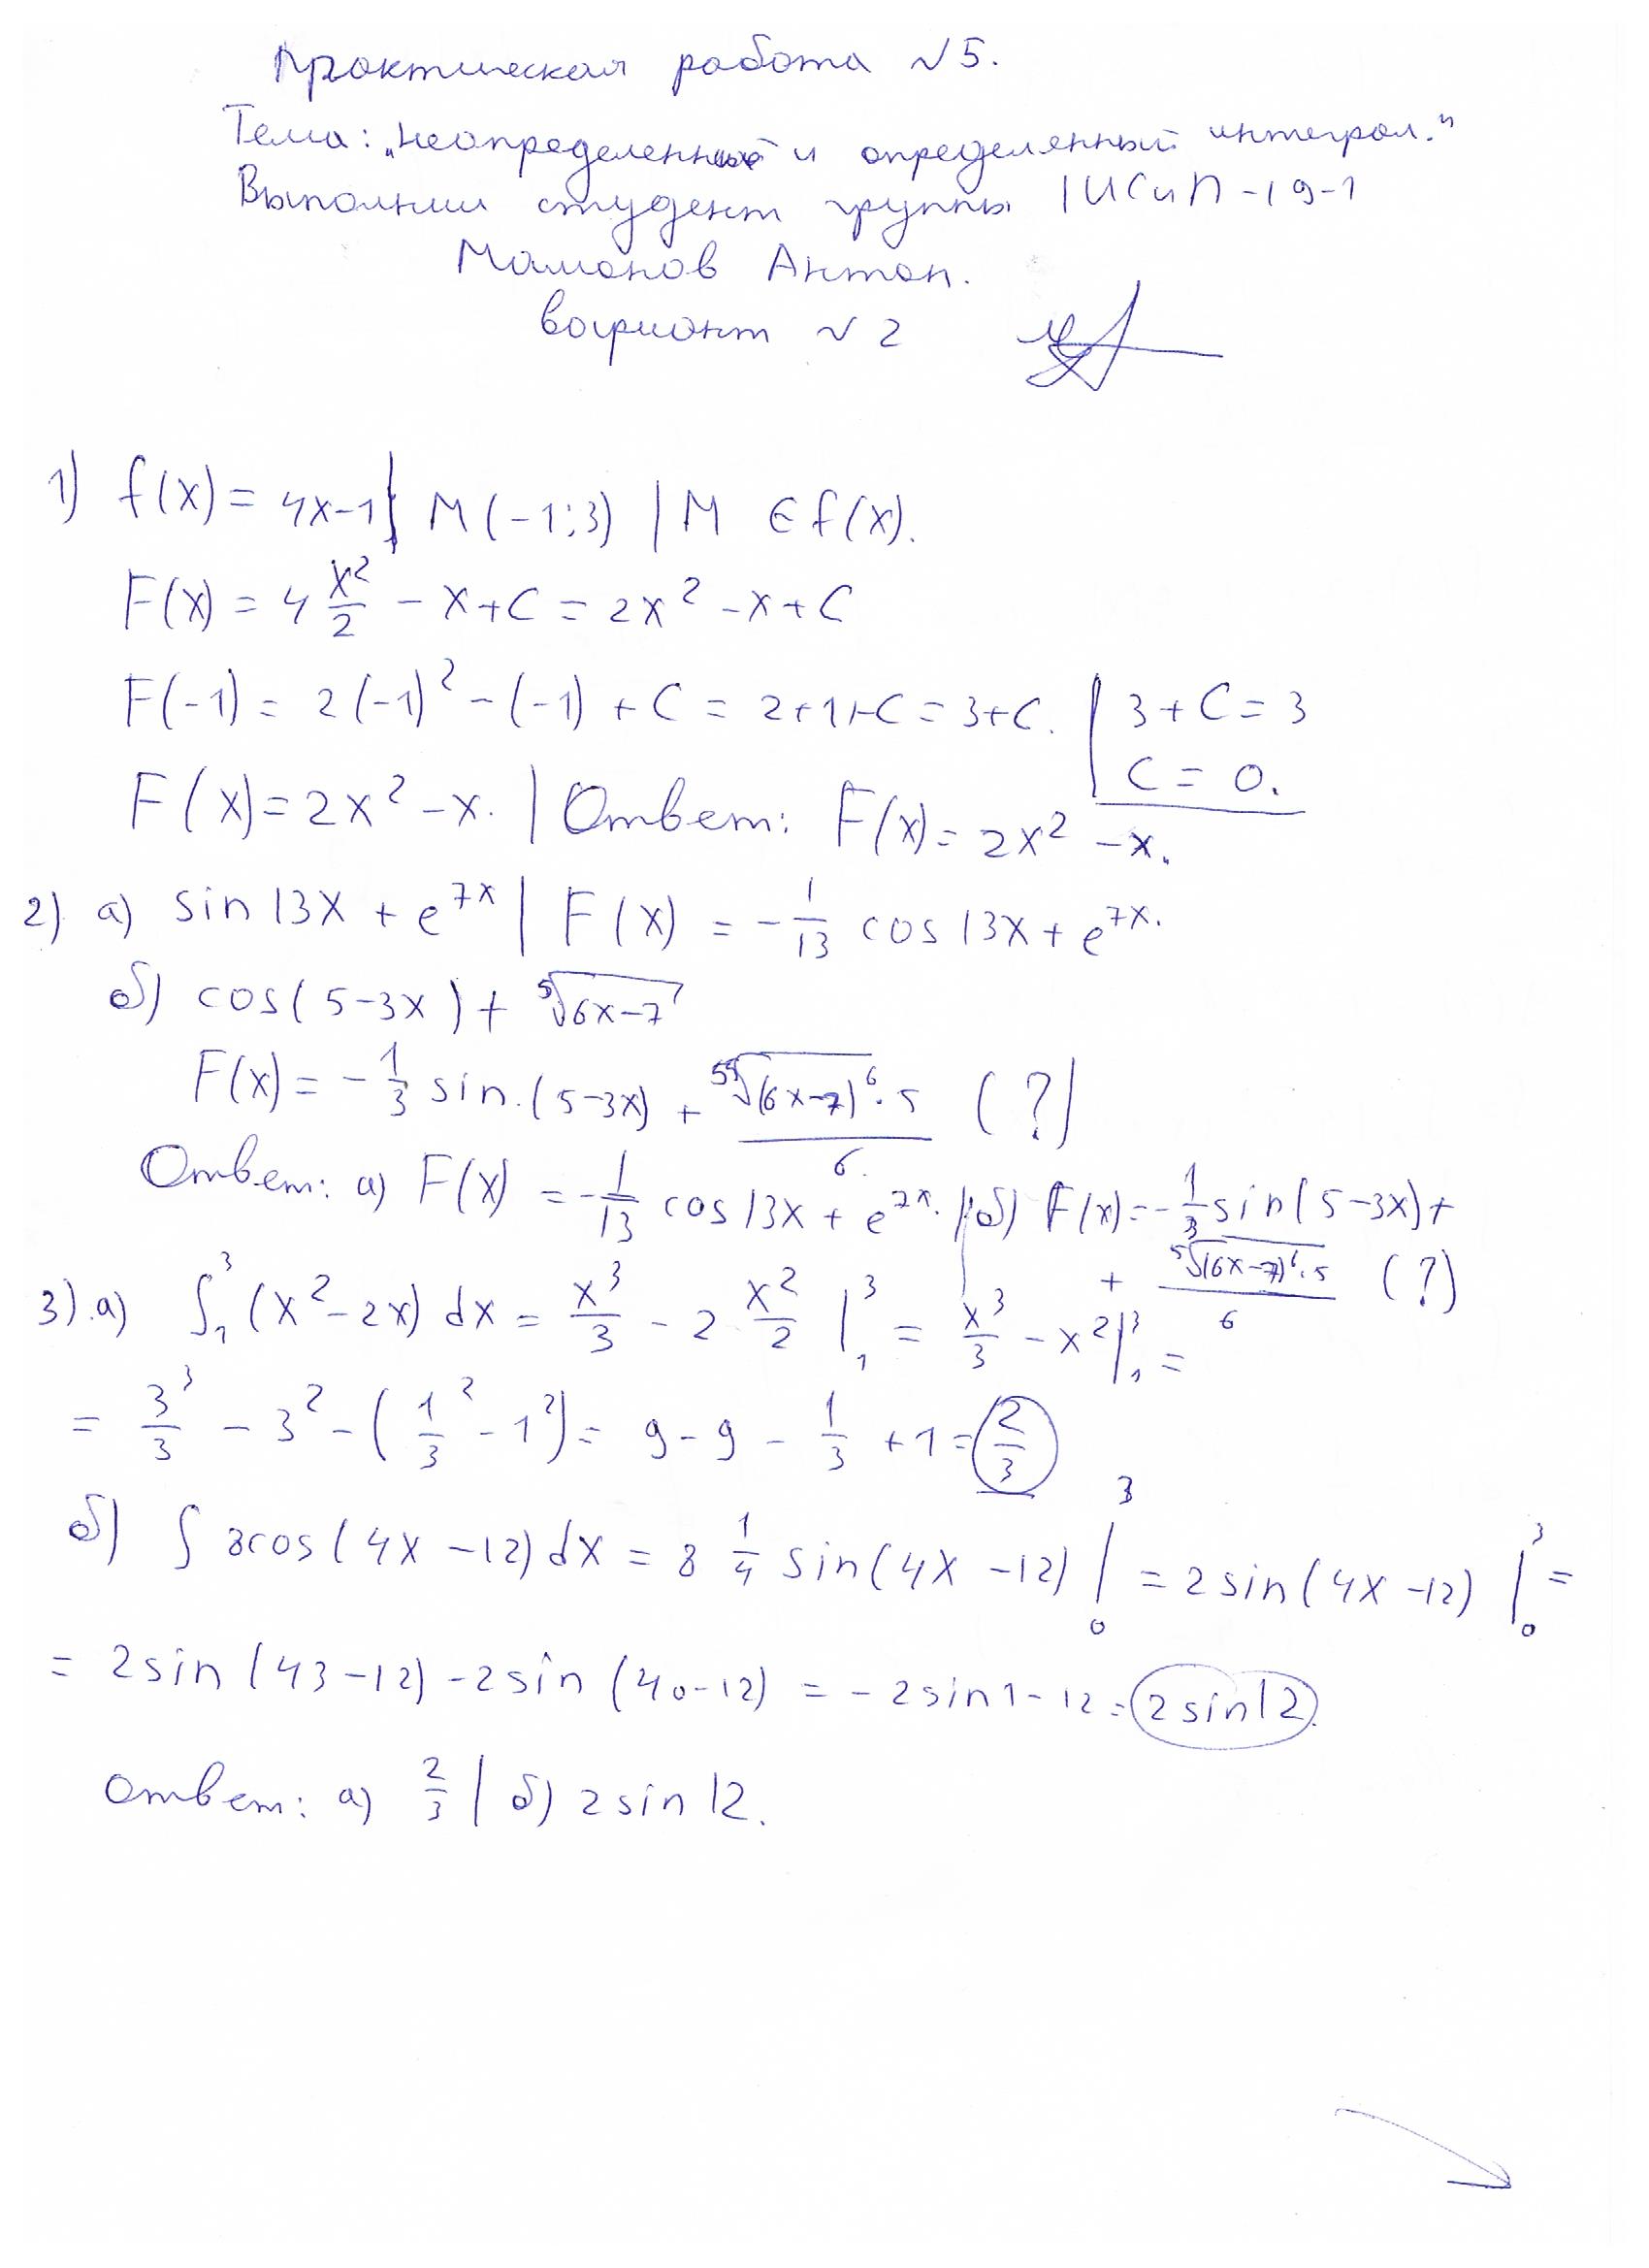 Практическая работа №5.
Тема: „Неопределенный и определенный интеграл."
Выполнил студент группы 1ИСиП-19-1
Мамонов Антон.
вариант №2
1) f(x) = 4x-1 | M(-1;3) | M ∈ f(x).
F(x) = 4 x²/2 - x + C = 2x² - x + C
F(-1) = 2(-1)² - (-1) + C = 2+1+C = 3+C. | 3 + C = 3
C = 0.
F(x) = 2x² - x. | Ответ: F(x) = 2x² - x.
2) а) sin 13x + e^7x | F(x) = - 1/13 cos 13x + e^7x.
б) cos(5-3x) + ⁵√(6x-7)
F(x) = - 1/3 sin.(5-3x) + ⁵√(6x-7)⁶·5 / 6. (?)
Ответ: а) F(x) = - 1/13 cos 13x + e^7x. | б) F(x) = - 1/3 sin(5-3x) +
+ ⁵√(6x-7)⁶·5 / 6 (?)
3). а) ∫₁³ (x² - 2x) dx = x³/3 - 2 x²/2 |₁³ = x³/3 - x² |₁³ =
= 3³/3 - 3² - (1²/3 - 1²) = 9 - 9 - 1/3 + 1 = 2/3
б) ∫ 8cos(4x - 12) dx = 8 1/4 sin(4x - 12) |₀³ = 2 sin(4x - 12) |₀³ =
= 2 sin (43 - 12) - 2 sin (40 - 12) = - 2 sin 1 - 12 = 2 sin 12.
Ответ: а) 2/3 | б) 2 sin 12.